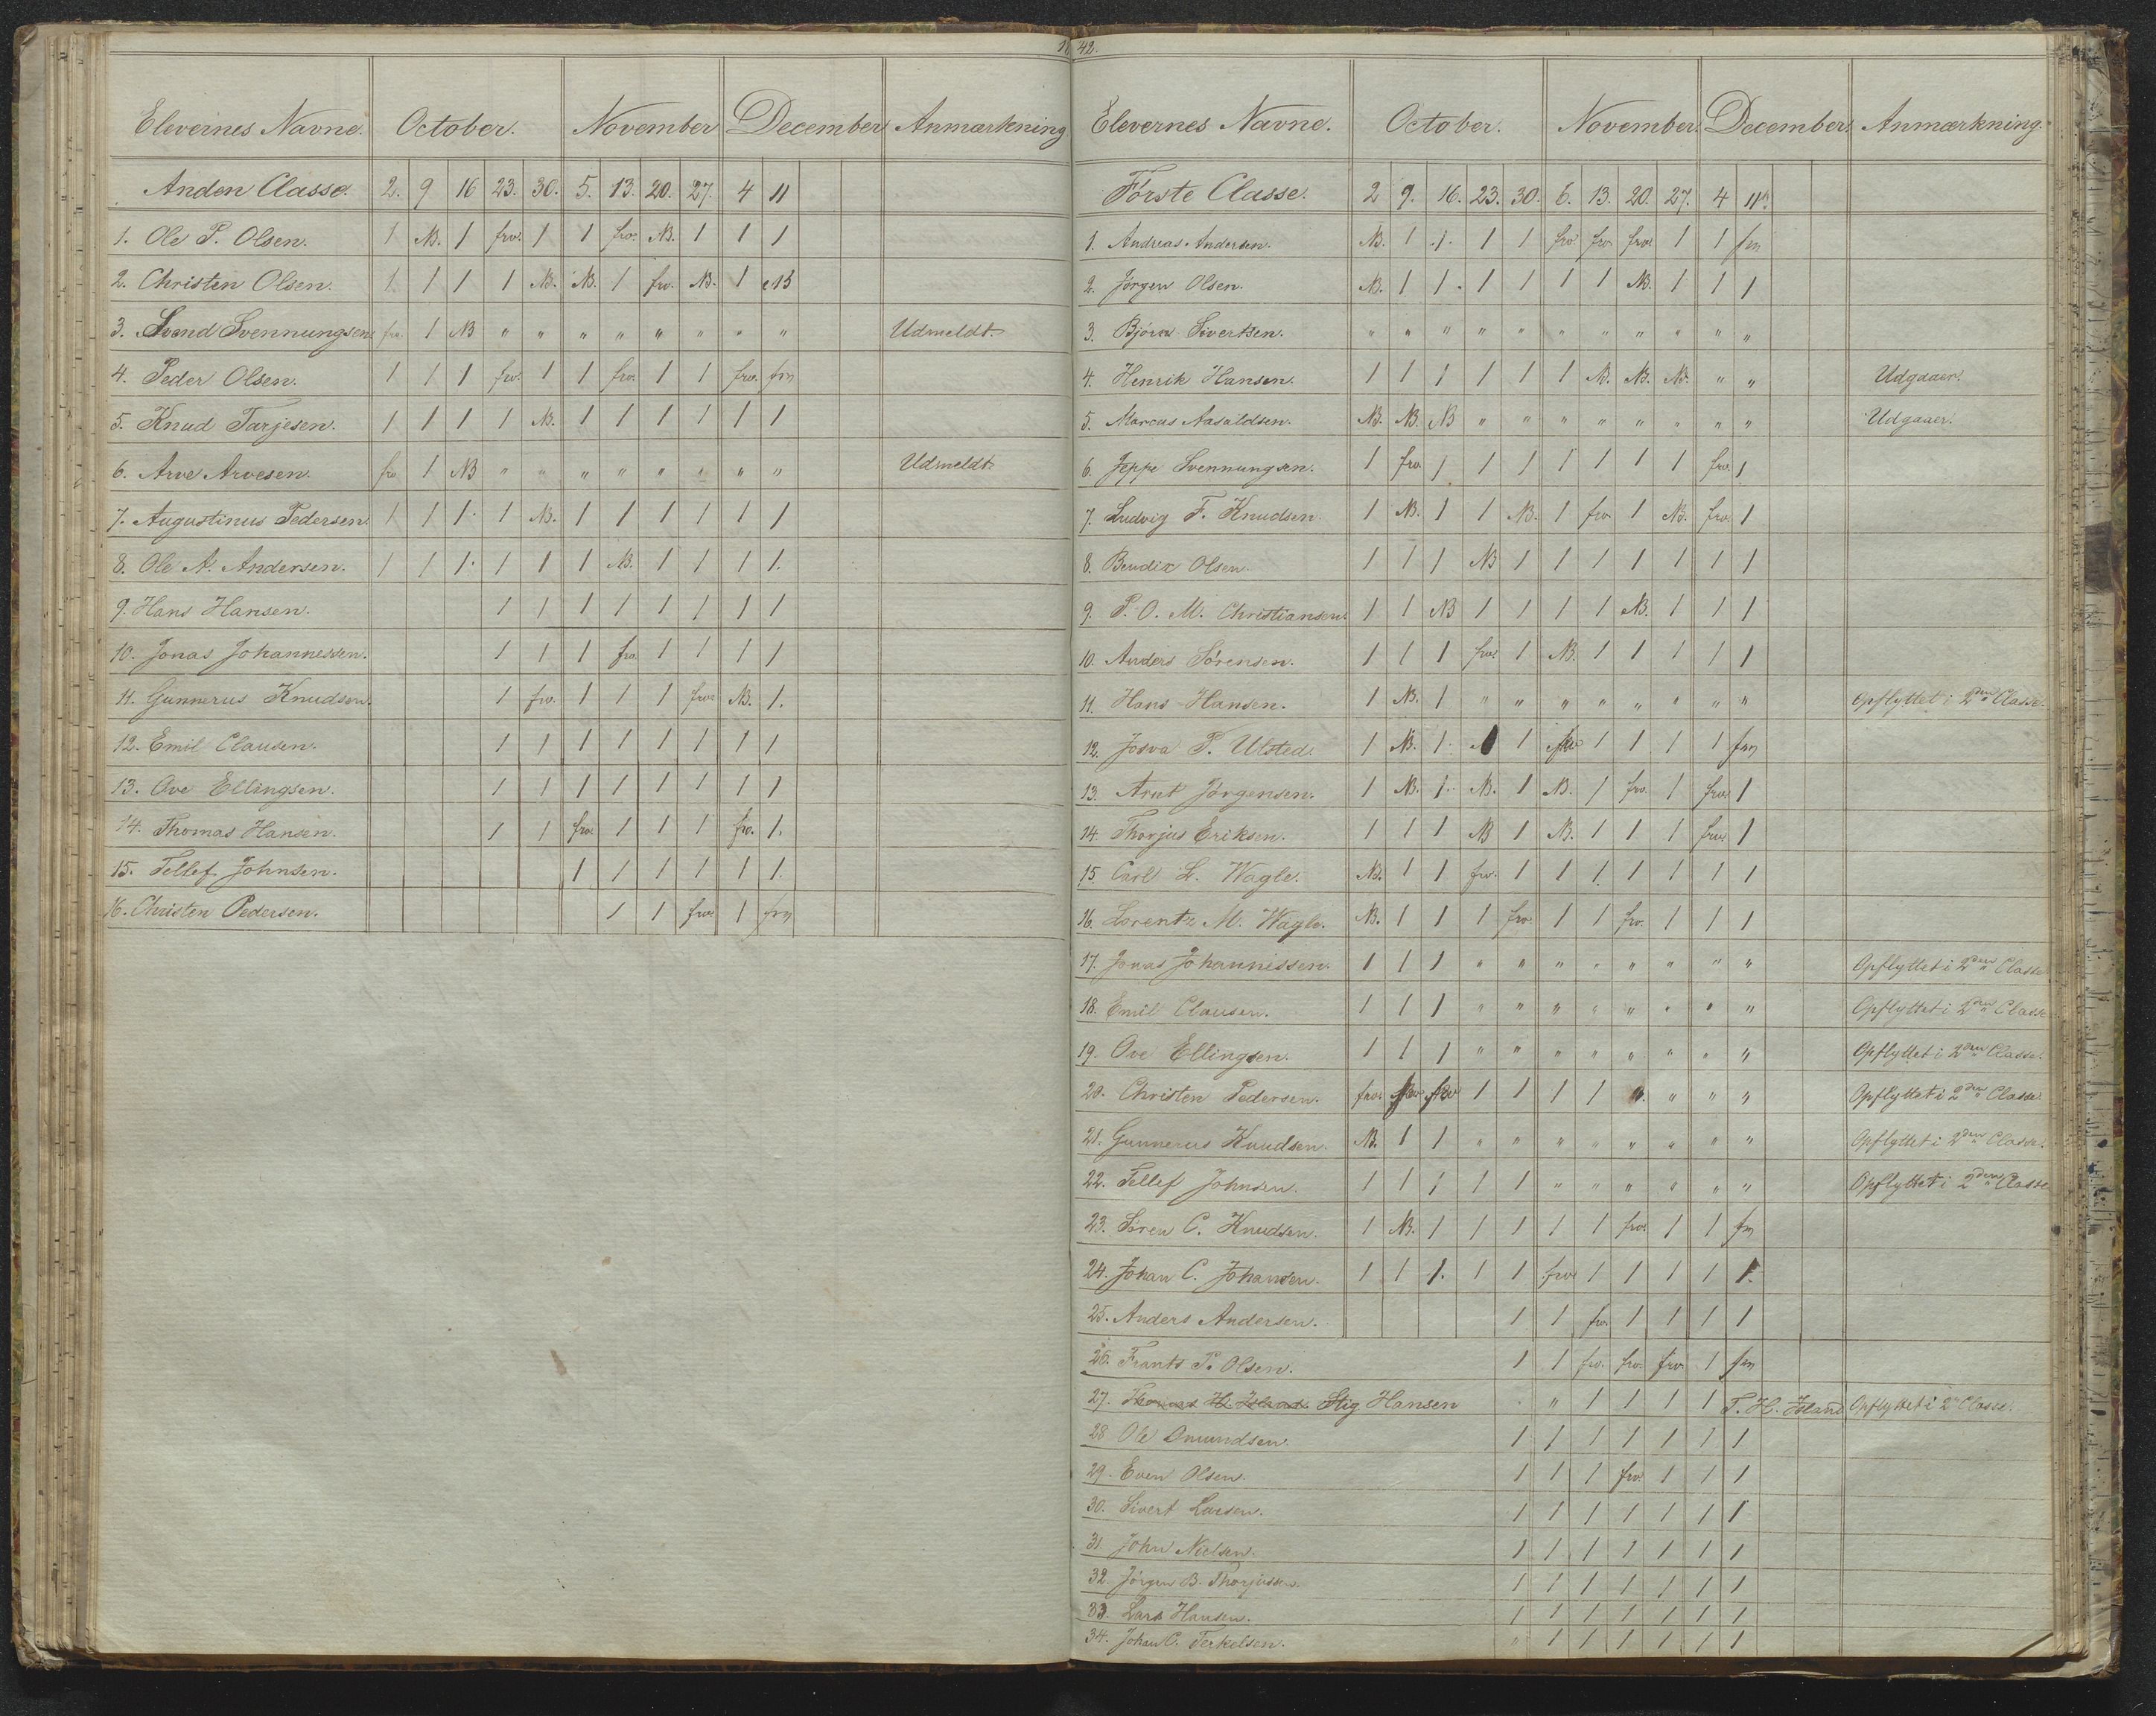 Elevernes Navne. October. November December Anmærkning
Anden Classe. 2. 9 16 23. 30. 5. 13. 20. 27. 4 11
1. Ole P. Olsen. 1 NB. 1 frv. 1 1 frv. NB. 1 1 1
2. Christen Olsen. 1 1 1 1 NB. NB. 1 frv. NB. 1 NB
3. Svend Svennungsen frv. 1 NB " " " " " " " " Udmeldt.
4. Peder Olsen. 1 1 1 frv. 1 1 frv. 1 1 frv. frv
5. Knud Tarjesen. 1 1 1 1 NB. 1 1 1 1 1 1
6. Arve Arvesen. frv. 1 NB " " " " " " " " Udmeldt
7. Augustinus Pedersen. 1 1 1. 1 NB. 1 1 1 1 1 1
8. Ole A. Andersen. 1 1 1. 1 1 1 NB. 1 1 1 1.
9. Hans Hansen. 1 1 1 1 1 1 1 1
10. Jonas Johannessen. 1 1 1 frv. 1 1 1 1
11. Gunnerus Knudsen. 1 frv. 1 1 1 frv. NB. 1.
12. Emil Clausen. 1 1 1 1 1 1 1 1
13. Ove Ellingsen. 1 1 1 1 1 1 1 1
14. Thomas Hansen. 1 1 frv. 1 1 1 frv. 1.
15. Tellef Johnsen. 1 1 1 1 1 1.
16. Christen Pedersen. 1 1 frv. 1 frv
42.
Elevernes Navne. October. November. December. Anmærkning.
Første Classe. 2 9. 16. 23. 30. 6. 13. 20. 27. 4 11
1. Andreas Andersen. NB. 1 1. 1 1 frv. frv. frv. 1 1 frv
2. Jørgen Olsen. NB. 1 1. 1 1 1 1 NB. 1 1 1
3. Bjørn Sivertsen. " " " " " " " " " " "
4. Henrik Hansen. 1 1 1 1 1 1 NB. NB. NB. " " Udgaaer.
5. Marcus Aasaldsen. NB. NB. NB " " " " " " " " Udgaaer.
6. Jeppe Svennungsen. 1 frv. 1 1 1 1 1 1 1 frv. 1
7. Ludvig F. Knudsen 1 NB. 1 1 NB. 1 frv. 1 NB. frv. 1
8. Bendix Olsen. 1 1 1 NB 1 1 1 1 1 1 1
9. P. O. M. Christiansen. 1 1 NB 1 1 1 1 NB. 1 1 1
10. Anders Sørensen. 1 1 1 frv. 1 NB. 1 1 1 1 1
11. Hans Hansen. 1 NB. 1 " " " " " " " " Opflyttet i 2den Classe.
12. Josva T. Ulsted. 1 NB. 1. 1 frv 1 1 1 1 frv
13. Arnt Jörgensen. 1 NB. 1. NB. 1 NB. 1 frv. 1 frv. 1
14. Thorjus Eriksen. 1 1 1 NB 1 NB. 1 1 1 frv. 1
15. Carl L. Wagle. NB. 1 1 frv. 1 1 1 1 1 1 1
16. Lorentz M. Wagle. NB. 1 1 1 frv. 1 1 frv. 1 1 1
17. Jonas Johannissen. 1 1 1 " " " " " " " " Opflyttet i 2den Classe
18. Emil Clausen. 1 1 1 " " " " " " " " Opflyttet i 2den Classe
19. Ove Ellingsen. 1 1 1 " " " " " " " " Opflyttet i 2den Classe.
20. Christen Pedersen. frv. frv frv 1 1 1 1 " " " " Opflyttet i 2den Classe
21. Gunnerus Knudsen. NB. 1 1 " " " " " " " " Opflyttet i 2den Classe.
22. Tellef Johnsen. 1 1 1 1 1 " " " " " " Opflyttet i 2den Classe
23. Søren C. Knudsen. 1 NB. 1 1 1 1 1 frv. 1 1 frv
24. Johan C. Johansen. 1 1 1. 1 1 frv 1 1 1 1 1.
25. Anders Andersen. 1 1 frv. 1 1 1 1
26. Frants P. Olsen. 1 1 frv. frv. frv. 1 frv
27. Thomas H. Island. Stig Hansen " 1 1 1 1 T. H. Island Opflyttet i 2 Classe.
28 Ole Omundsen. 1 1 1 1 1 1 1
29. Even Olsen. 1 1 1 frv. 1 1 1
30. Sivert Larsen. 1 1 1 1 1 1 1
31. John Nielsen. 1 1 1 1 1 1 1
32. Jörgen B. Thorjussen. 1 1 1 1 1 1 1
33. Lars Hansen. 1 1 1 1 1 1 1
34. Johan C. Terkelsen. " 1 1 1 1 1 1